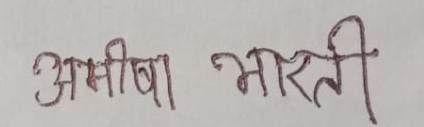 अमीषा भारती